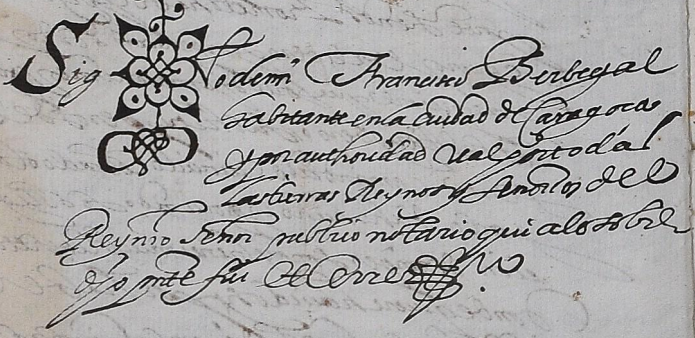 Sig No de mi Francisco Berbegal
habitante en la ciudad de Caragoça
y por authoridad Real por todas
las tierras Reynos y señorios del
Rey nro señor publico notario qui a lo sobre
dho pnte fui et cerre